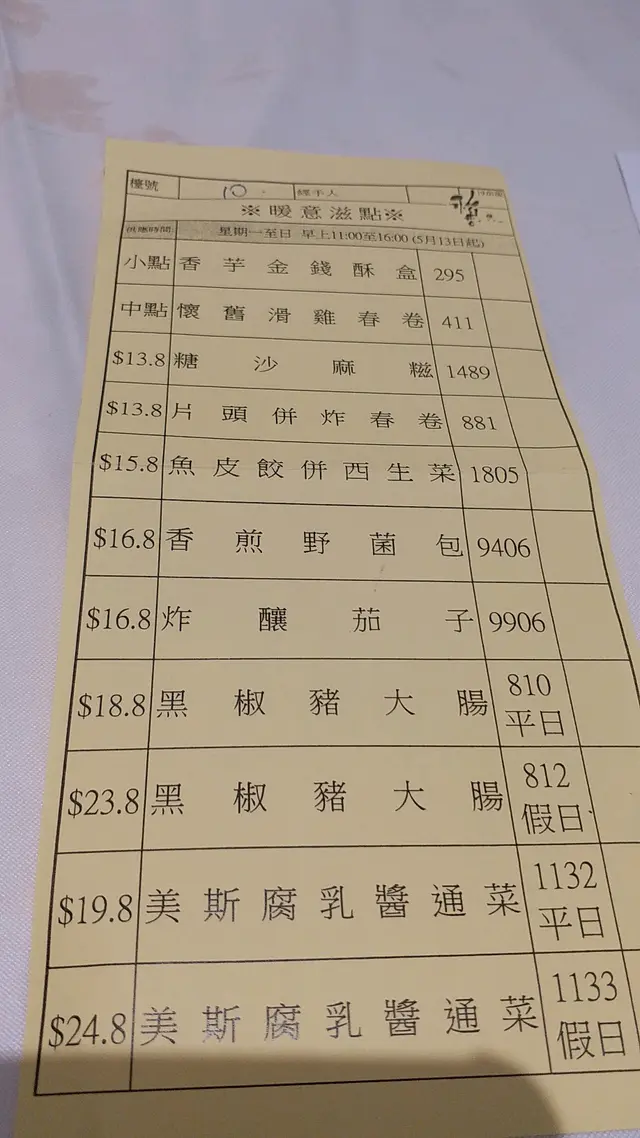 檯號 10 經手人
※暖意滋點※
供應時間: 星期一至日 早上11:00至16:00 (5月13日起)
小點 香芋金錢酥盒 295
中點 懷舊滑雞春卷 411
$13.8 糖沙麻糍 1489
$13.8 片頭併炸春卷 881
$15.8 魚皮餃併西生菜 1805
$16.8 香煎野菌包 9406
$16.8 炸釀茄子 9906
$18.8 黑椒豬大腸 810 平日
$23.8 黑椒豬大腸 812 假日
$19.8 美斯腐乳醬通菜 1132 平日
$24.8 美斯腐乳醬通菜 1133 假日